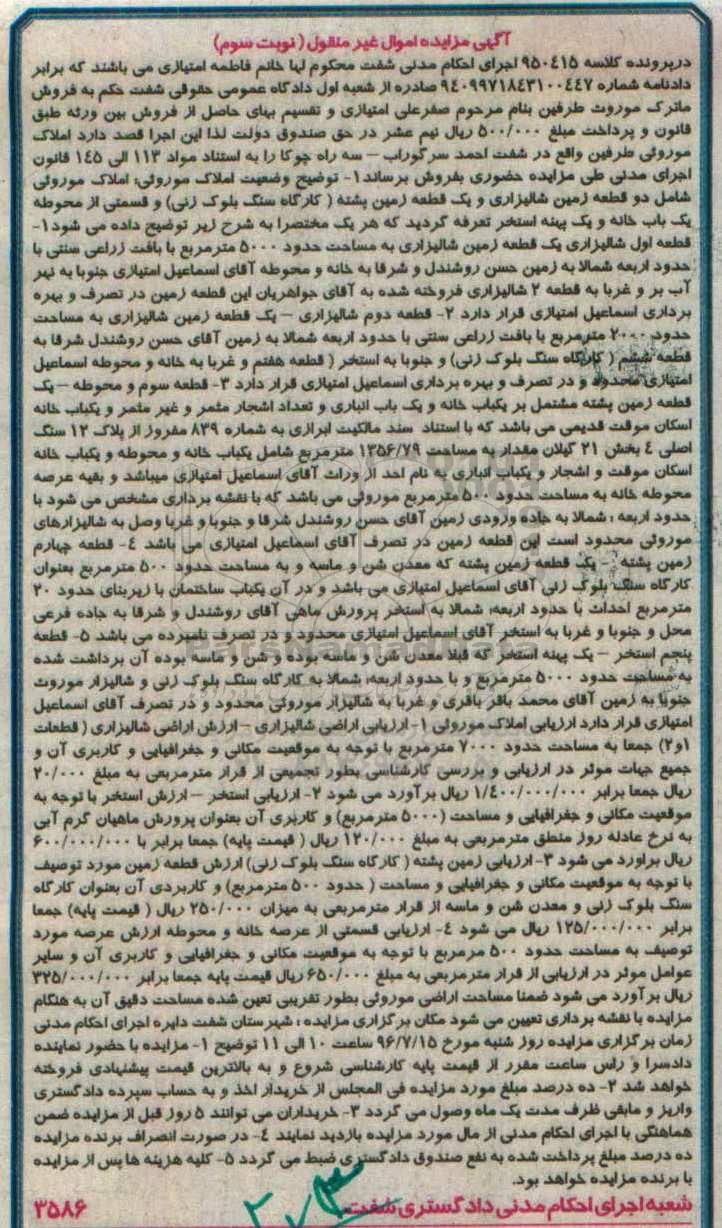 آگهی مزایده اموال غیر منقول ( نوبت سوم)
درپرونده کلاسه ۹۵۰۴۱۵ اجرای احکام مدنی شفت محکوم لها خانم فاطمه امتیازی می باشند که برابر
دادنامه شماره ۹۴۰۹۹۷۱۸۴۳۱۰۰۴۴۷ صادره از شعبه اول دادگاه عمومی حقوقی شفت حکم به فروش
ماترک موروث طرفین بنام مرحوم صفرعلی امتیازی و تقسیم بهای حاصل از فروش بین ورثه طبق
قانون و پرداخت مبلغ ۵۰۰/۰۰۰ ریال نیم عشر در حق صندوق دولت لذا این اجرا قصد دارد املاک
موروثی طرفین واقع در شفت احمد سرگوراب – سه راه چوکا را به استناد مواد ۱۱۳ الی ۱۴۵ قانون
اجرای مدنی طی مزایده حضوری بفروش برساند۱- توضیح وضعیت املاک موروثی: املاک موروثی
شامل دو قطعه زمین شالیزاری و یک قطعه زمین پشته ( کارگاه سنگ بلوک زنی) و قسمتی از محوطه
یک باب خانه و یک پهنه استخر تعرفه گردید که هر یک مختصرا به شرح زیر توضیح داده می شود۱-
قطعه اول شالیزاری یک قطعه زمین شالیزاری به مساحت حدود ۵۰۰۰ مترمربع با بافت زراعی سنتی با
حدود اربعه شمالا به زمین حسن روشندل و شرقا به خانه و محوطه آقای اسماعیل امتیازی جنوبا به نهر
آب بر و غربا به قطعه ۲ شالیزاری فروخته شده به آقای جواهریان این قطعه زمین در تصرف و بهره
برداری اسماعیل امتیازی قرار دارد ۲- قطعه دوم شالیزاری – یک قطعه زمین شالیزاری به مساحت
حدود ۲۰۰۰ مترمربع با بافت زراعی سنتی با حدود اربعه شمالا به زمین آقای حسن روشندل شرقا به
قطعه ششم ( کارگاه سنگ بلوک زنی) و جنوبا به استخر ( قطعه هفتم و غربا به خانه و محوطه اسماعیل
امتیازی محدود و در تصرف و بهره برداری اسماعیل امتیازی قرار دارد ۳- قطعه سوم و محوطه – یک
قطعه زمین پشته مشتمل بر یکباب خانه و یک باب انباری و تعداد اشجار مثمر و غیر مثمر و یکباب خانه
اسکان موقت قدیمی می باشد که با استناد سند مالکیت ابرازی به شماره ۸۳۹ مفروز از پلاک ۱۲ سنگ
اصلی ۴ بخش ۲۱ گیلان مقدار به مساحت ۱۳۵۶/۷۹ مترمربع شامل یکباب خانه و محوطه و یکباب خانه
اسکان موقت و اشجار و یکباب انباری به نام احد از وراث آقای اسماعیل امتیازی میباشد و بقیه عرصه
محوطه خانه به مساحت حدود ۵۰۰ مترمربع موروثی می باشد که با نقشه برداری مشخص می شود با
حدود اربعه : شمالا به جاده ورودی زمین آقای حسن روشندل شرقا و جنوبا و غربا وصل به شالیزارهای
موروثی محدود است این قطعه زمین در تصرف آقای اسماعیل امتیازی می باشد ۴- قطعه چهارم
زمین پشته – یک قطعه زمین پشته که معدن شن و ماسه و به مساحت حدود ۵۰۰ مترمربع بعنوان
کارگاه سنگ بلوک زنی آقای اسماعیل امتیازی می باشد و در آن یکباب ساختمان با زیربنای حدود ۲۰
مترمربع احداث با حدود اربعه: شمالا به استخر پرورش ماهی آقای روشندل و شرقا به جاده فرعی
محل و جنوبا و غربا به استخر آقای اسماعیل امتیازی محدود و در تصرف نامبرده می باشد ۵- قطعه
پنجم استخر – یک پهنه استخر که قبلا معدن شن و ماسه بوده و شن و ماسه بوده آن برداشت شده
به مساحت حدود ۵۰۰۰ مترمربع و با حدود اربعه: شمالا به کارگاه سنگ بلوک زنی و شالیزار موروث
جنوبا به زمین آقای محمد باقر باقری و غربا به شالیزار موروثی محدود و در تصرف آقای اسماعیل
امتیازی قرار دارد ارزیابی املاک موروثی ۱- ارزیابی اراضی شالیزاری – ارزش اراضی شالیزاری ( قطعات
۱و۲) جمعا به مساحت حدود ۷۰۰۰ مترمربع با توجه به موقعیت مکانی و جغرافیایی و کاربری آن و
جمیع جهات موثر در ارزیابی و بررسی کارشناسی بطور تجمیعی از قرار مترمربعی به مبلغ ۲۰/۰۰۰
ریال جمعا برابر ۱/۴۰۰/۰۰۰/۰۰۰ ریال برآورد می شود ۲- ارزیابی استخر – ارزش استخر با توجه به
موقعیت مکانی و جغرافیایی و مساحت (۵۰۰۰ مترمربع) و کاربری آن بعنوان پرورش ماهیان گرم آبی
به نرخ عادله روز منطق مترمربعی به مبلغ ۱۲۰/۰۰۰ ریال ( قیمت پایه) جمعا برابر با ۶۰۰/۰۰۰/۰۰۰
ریال براورد می شود ۳- ارزیابی زمین پشته ( کارگاه سنگ بلوک زنی) ارزش قطعه زمین مورد توصیف
با توجه به موقعیت مکانی و جغرافیایی و مساحت ( حدود ۵۰۰ مترمربع) و کاربردی آن بعنوان کارگاه
سنگ بلوک زنی و معدن شن و ماسه از قرار مترمربعی به میزان ۲۵۰/۰۰۰ ریال ( قیمت پایه) جمعا
برابر ۱۲۵/۰۰۰/۰۰۰ ریال می شود ۴- ارزیابی قسمتی از عرصه خانه و محوطه ارزش عرصه مورد
توصیف به مساحت حدود ۵۰۰ مرمربع با توجه به موقعیت مکانی و جغرافیایی و کاربری آن و سایر
عوامل موثر در ارزیابی از قرار مترمربعی به مبلغ ۶۵۰/۰۰۰ ریال قیمت پایه جمعا برابر ۳۲۵/۰۰۰/۰۰۰
ریال برآورد می شود ضمنا مساحت اراضی موروثی بطور تقریبی تعین شده مساحت دقیق آن به هنگام
مزایده با نقشه برداری تعیین می شود مکان برگزاری مزایده : شهرستان شفت دایره اجرای احکام مدنی
زمان برگزاری مزایده روز شنبه مورخ ۹۶/۷/۱۵ ساعت ۱۰ الی ۱۱ توضیح ۱- مزایده با حضور نماینده
دادسرا و راس ساعت مقرر از قیمت پایه کارشناسی شروع و به بالاترین قیمت پیشنهادی فروخته
خواهد شد ۲- ده درصد مبلغ مورد مزایده فی المجلس از خریدار اخذ و به حساب سپرده دادگستری
واریز و مابقی ظرف مدت یک ماه وصول می گردد ۳- خریداران می توانند ۵ روز قبل از مزایده ضمن
هماهنگی با اجرای احکام مدنی از مال مورد مزایده بازدید نمایند ۴- در صورت انصراف برنده مزایده
ده درصد مبلغ پرداخت شده به نفع صندوق دادگستری ضبط می گردد ۵- کلیه هزینه ها پس از مزایده
با برنده مزایده خواهد بود.
شعبه اجرای احکام مدنی دادگستری شفت
۳۵۸۶